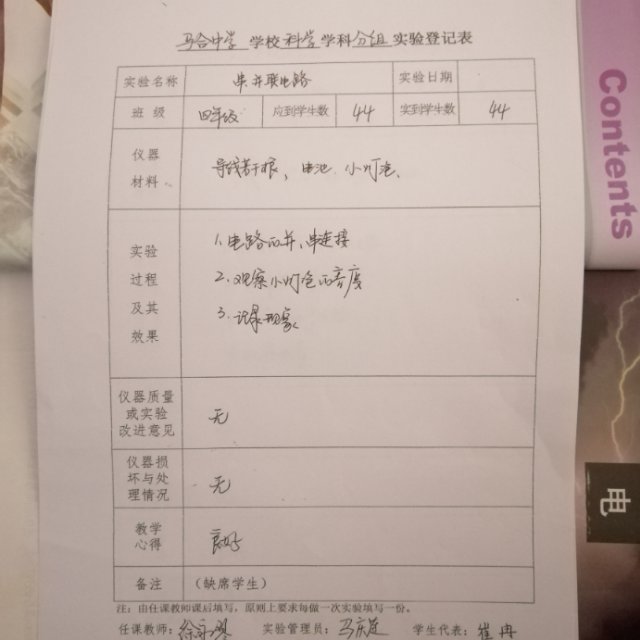 马合中学 学校 科学 学科 分组 实验登记表
实验名称 串并联电路 实验日期
班 级 四年级 应到学生数 44 实到学生数 44
仪器
材料 导线若干根、电池、小灯泡、
实验
过程
及其
效果
1.电路的并、串连接
2.观察小灯泡的亮度
3.记录现象
仪器质量
或实验
改进意见
无
仪器损
坏与处
理情况
无
教学
心得
良好
备注 (缺席学生)
注:由任课教师课后填写,原则上要求每做一次实验填写一份。
任课教师: 实验管理员: 学生代表: 崔冉
Contents
电